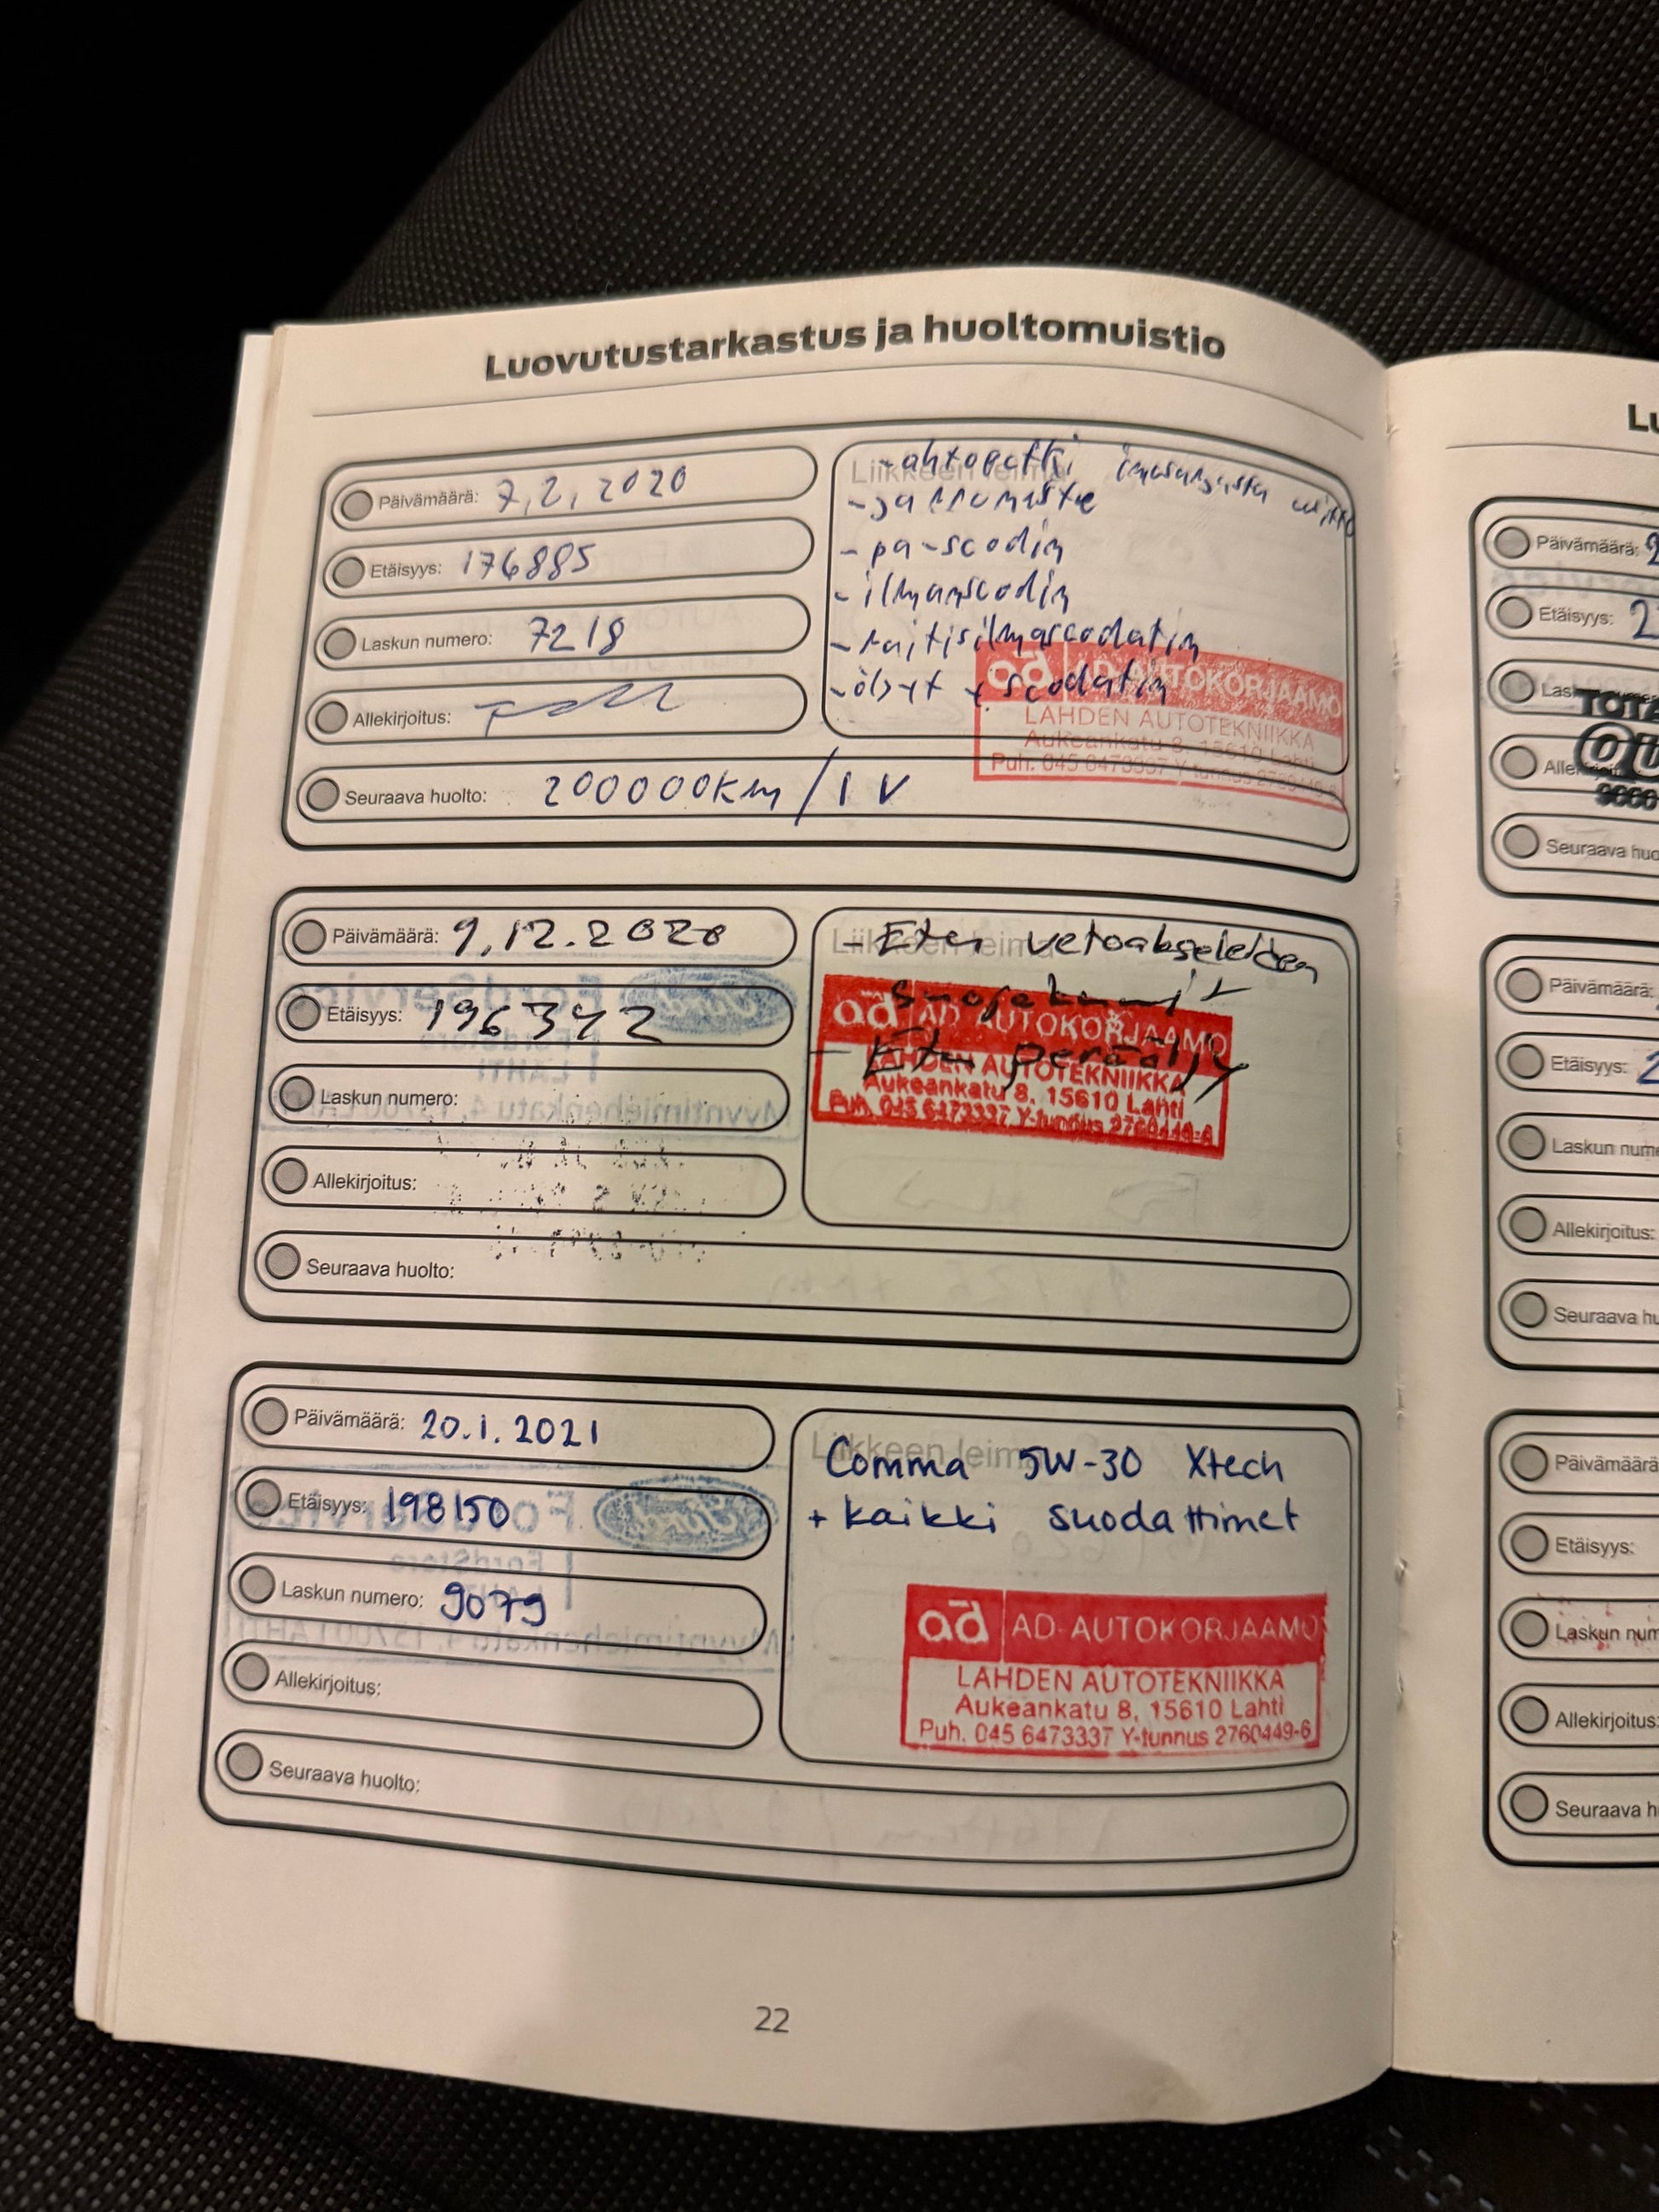 Luovutustarkastus ja huoltomuistio
Päivämäärä: 7.2.2020
Etäisyys: 176885
Laskun numero: 7218
Allekirjoitus:
Seuraava huolto: 200000km / 1 V
Liikkeen leima
- ahtoputki
- jarruneste
- pa-scodin
- ilmanscodin
- raitisilmascodatin
- öljyt + scodatin
ad AD-AUTOKORJAAMO
LAHDEN AUTOTEKNIIKKA
Aukeankatu 8, 15610 Lahti
Puh. 045 6473337 Y-tunnus 2760449-6
Päivämäärä: 9.12.2020
Etäisyys: 196342
Laskun numero:
Allekirjoitus:
Seuraava huolto:
Liikkeen leima
- Etu vetoakseleiden
suojakumit
- Etu peräöljy
ad AD AUTOKORJAAMO
LAHDEN AUTOTEKNIIKKA
Aukeankatu 8, 15610 Lahti
Puh. 045 6473337 Y-tunnus 2760449-6
Päivämäärä: 20.1.2021
Etäisyys: 198150
Laskun numero: 9079
Allekirjoitus:
Seuraava huolto:
Liikkeen leima
Comma 5W-30 Xtech
+ kaikki suodattimet
ad AD-AUTOKORJAAMO
LAHDEN AUTOTEKNIIKKA
Aukeankatu 8, 15610 Lahti
Puh. 045 6473337 Y-tunnus 2760449-6
22
Lu
Päivämäärä: 2
Etäisyys: 2
Las
TOTA
Alle
Seuraava huo
Päivämäärä:
Etäisyys: 2
Laskun nume
Allekirjoitus:
Seuraava hu
Päivämäärä
Etäisyys:
Laskun num
Allekirjoitus:
Seuraava h